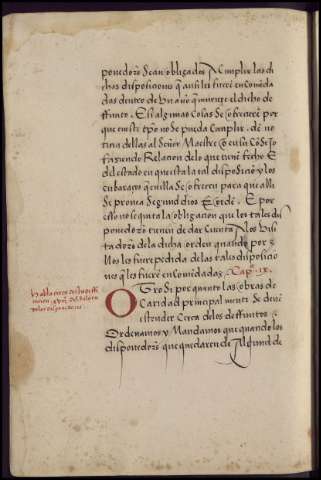 ponedor̃s sean obligados A cumplir las di
chas disposiciones q̃ ansi les fuerẽ encomẽda
das dentro de vn año q̃ muriere el dicho de
ffuncto. E si algunas cosas se ofrecerẽ por
que en este tpõ no se pueda cumplir. dẽ no
ticia dellas al Señor Maestre o en su Cõsejo
faziendo Relacion de lo que tienẽ fecho E
del estado en que esta la tal disposiciõ y los
enbaraços q̃ en illa se ofrecen para que alli
se prouea segund dios E orden. E por
esso no se quita la obligacion que los tales dis
ponedor̃s tienẽ de dar cuenta A los visi
tador̃s de la dicha orden quando por e
llos les fuere pedida de las tales disposicio
nes q̃ les fuerẽ encomẽdadas. Cap. ix.
OTrosi por quanto las obras de
Caridad principal mente se deuẽ
estender Cerca de los deffuntos
Ordenamos y Mandamos que quando los
disponedor̃s que quedaren de Algund de